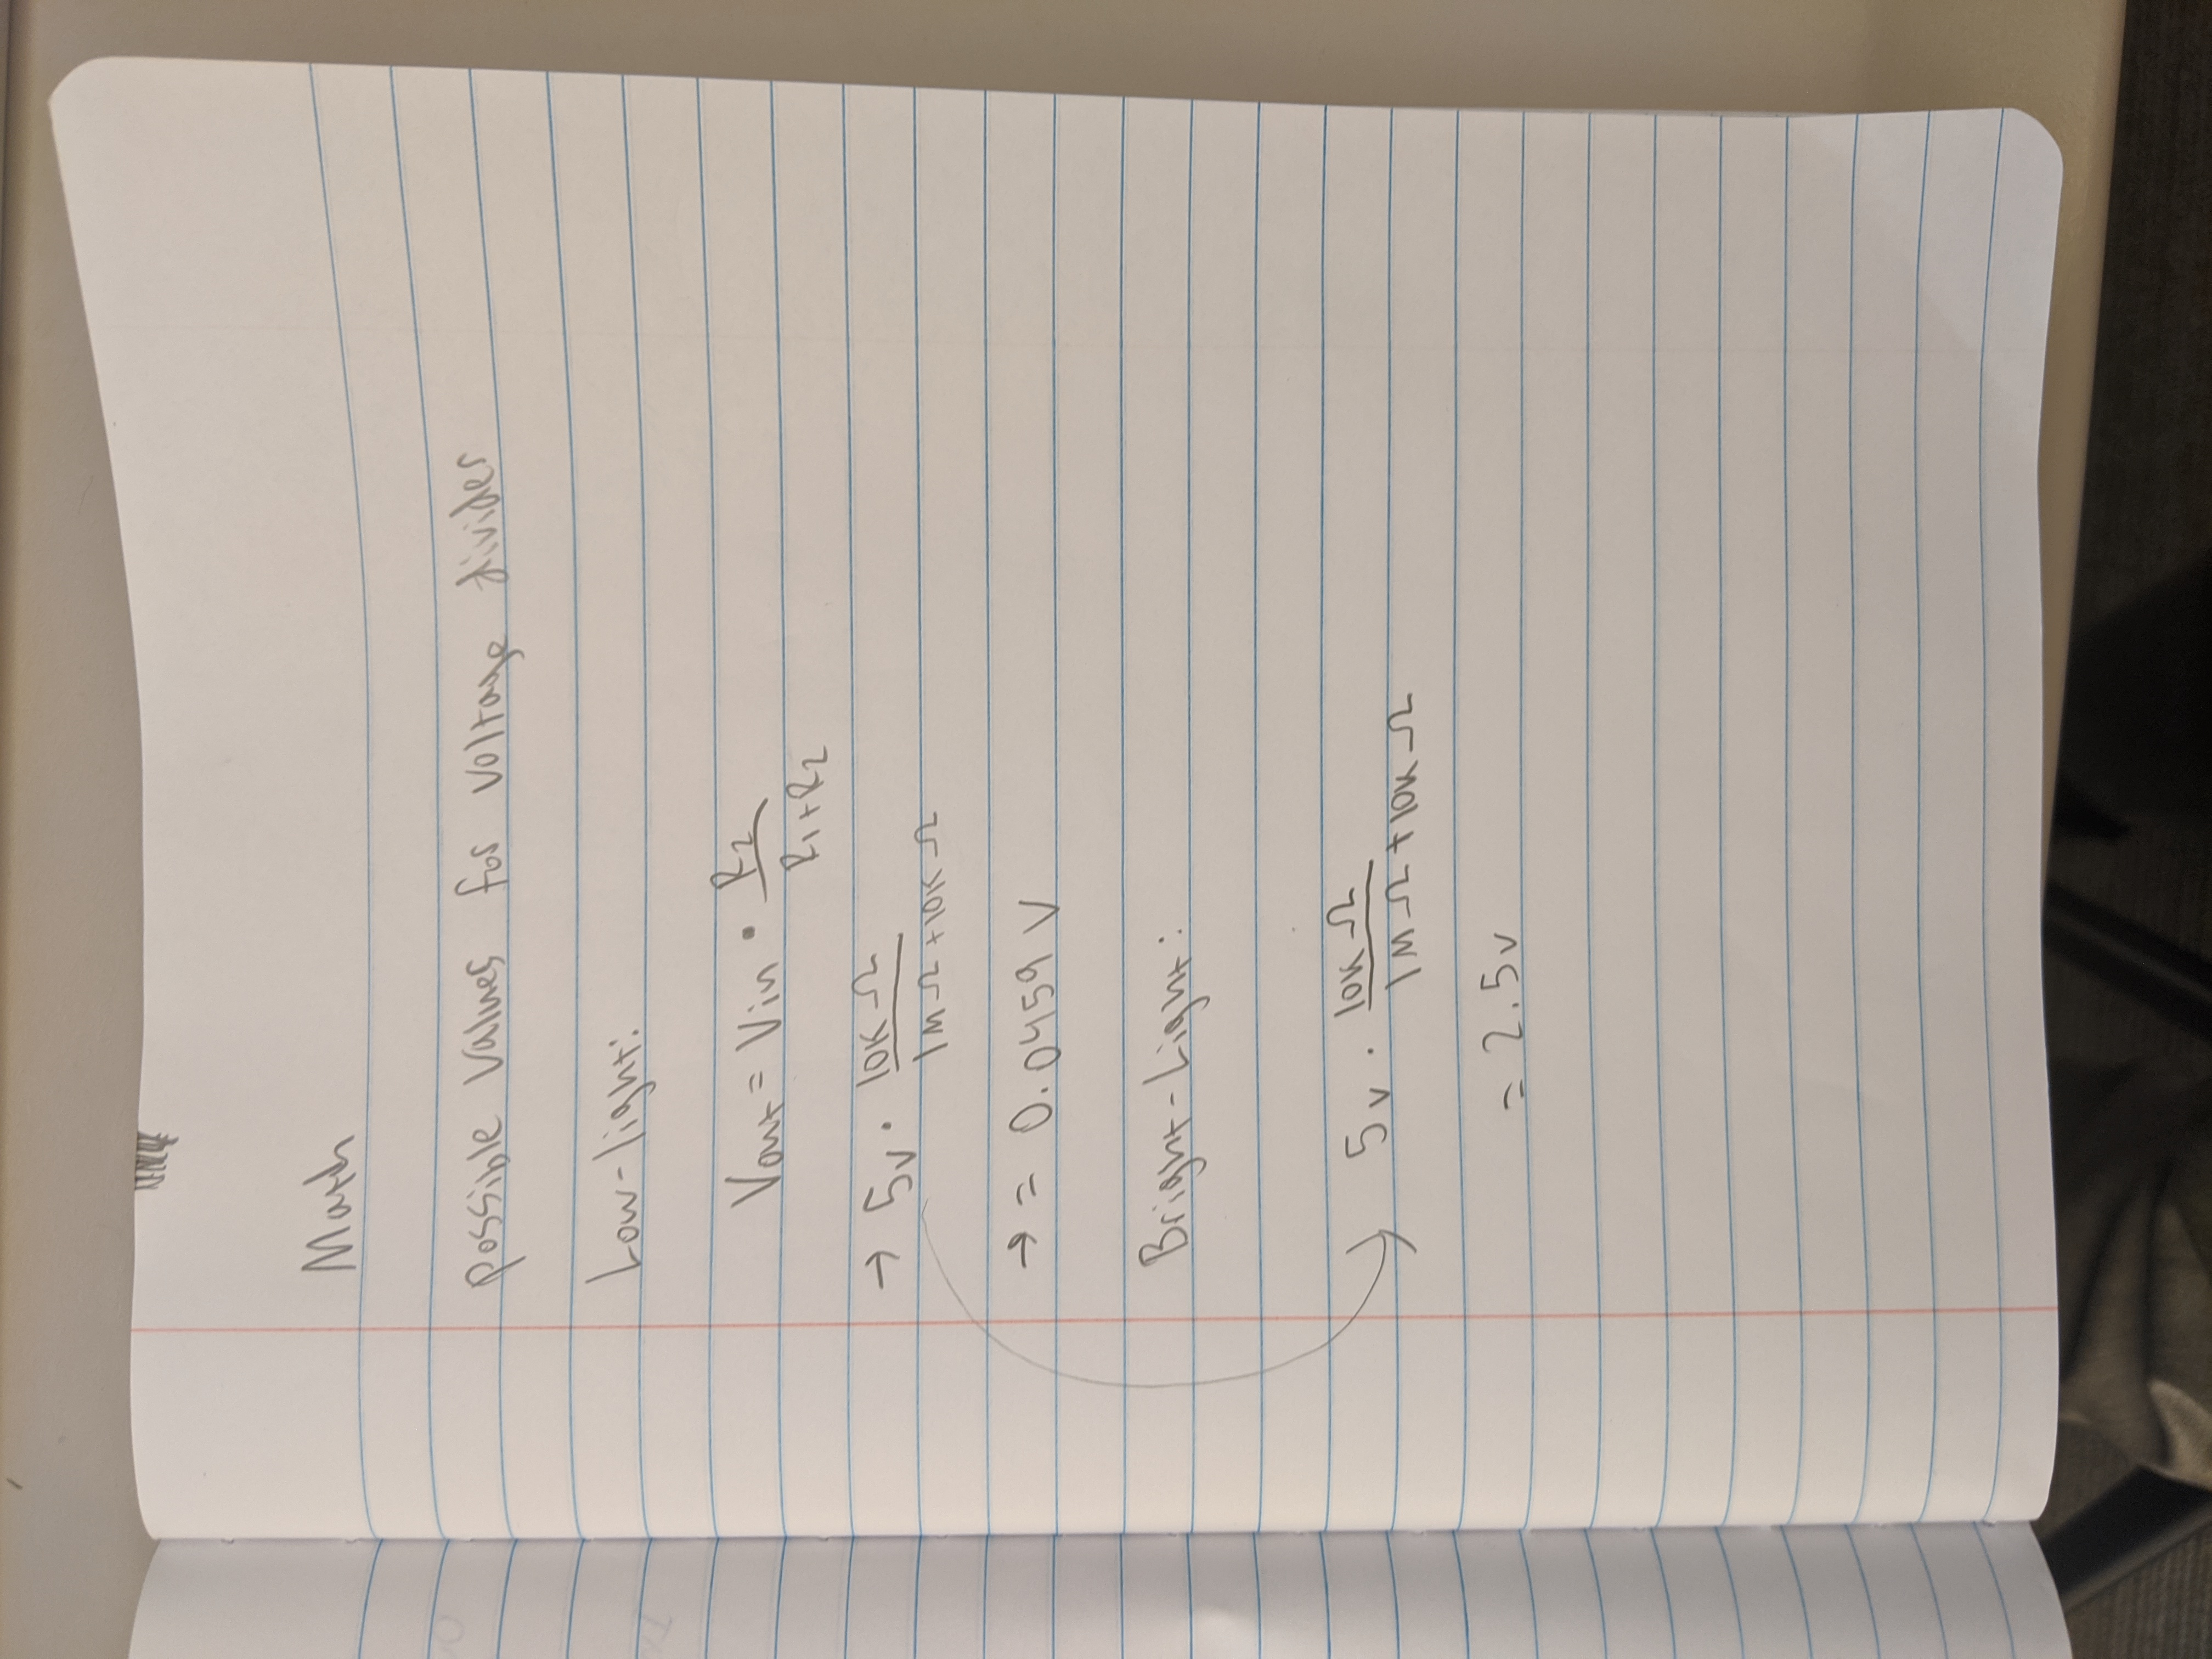 Math
possible values for voltage divider
Low-light:
Vout = Vin · R2 / R1+R2
→ 5v · 10K Ω / 1M Ω + 10K Ω
→ = 0.0459 V
Bright-Light:
5v · 10K Ω / 1M Ω + 10K Ω
= 2.5v